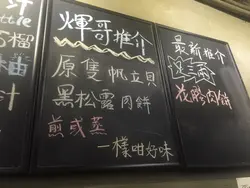 輝哥推介
原隻帆立貝
黑松露肉餅
煎或蒸
一樣咁好味
最新推介
花膠肉餅